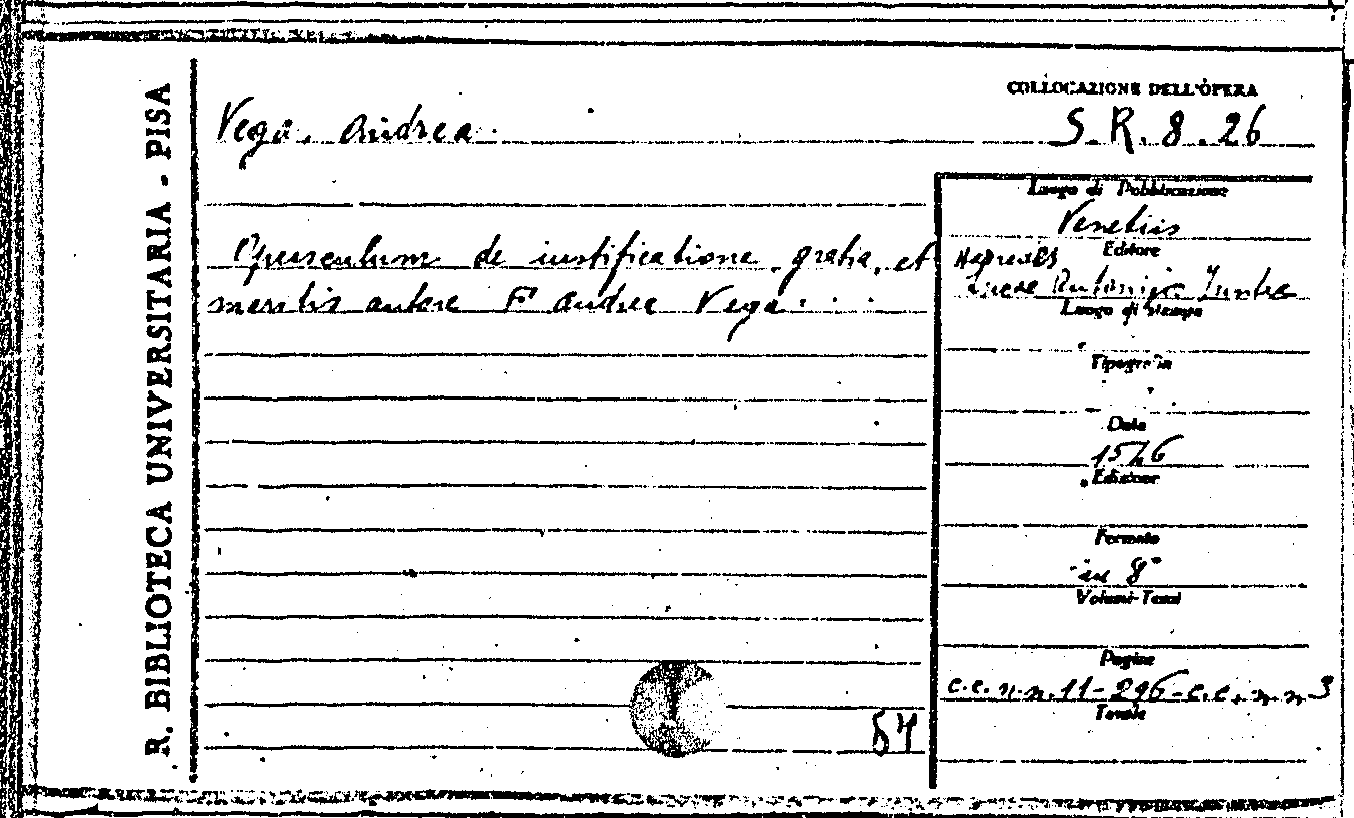 R. BIBLIOTECA UNIVERSITARIA - PISA
COLLOCAZIONE DELL'OPERA
Vega. Andrea.
S. R. 8. 26
Luogo di Pubblicazione
Venetiis
Opusculum de iustificatione, gratia, et
meritis autore F Andrea Vega
Editore
Lucae Antonij Juntae
Luogo di stampa
Tipografia
Data
1546
Edizione
Formato
in 8°
Volumi-Tomi
Pagine
c.c. n.n. 11 - 296 - c.c. n.n 3
Tavole